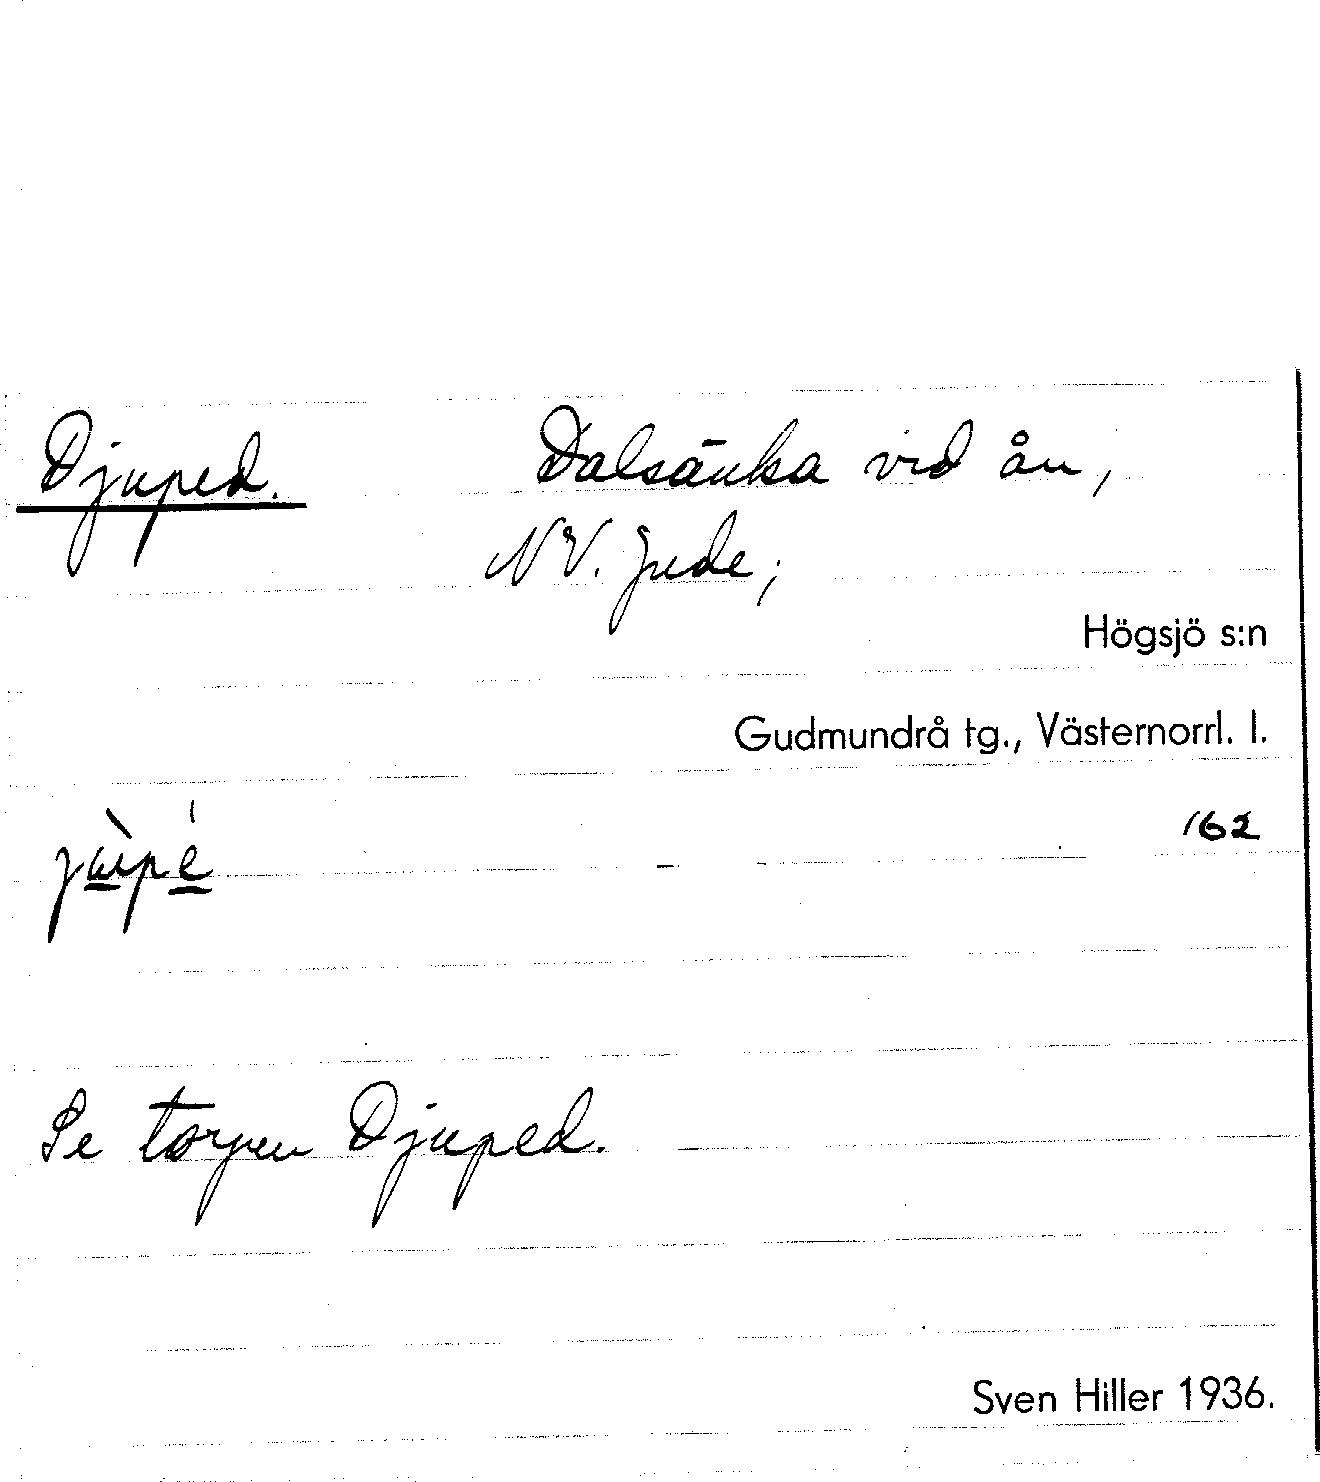 Djuped. Dalsänka vid ån,
NV. Jude;
Högsjö s:n
Gudmundrå tg., Västernorrl. l.
162
Se torpen Djuped.
Sven Hiller 1936.